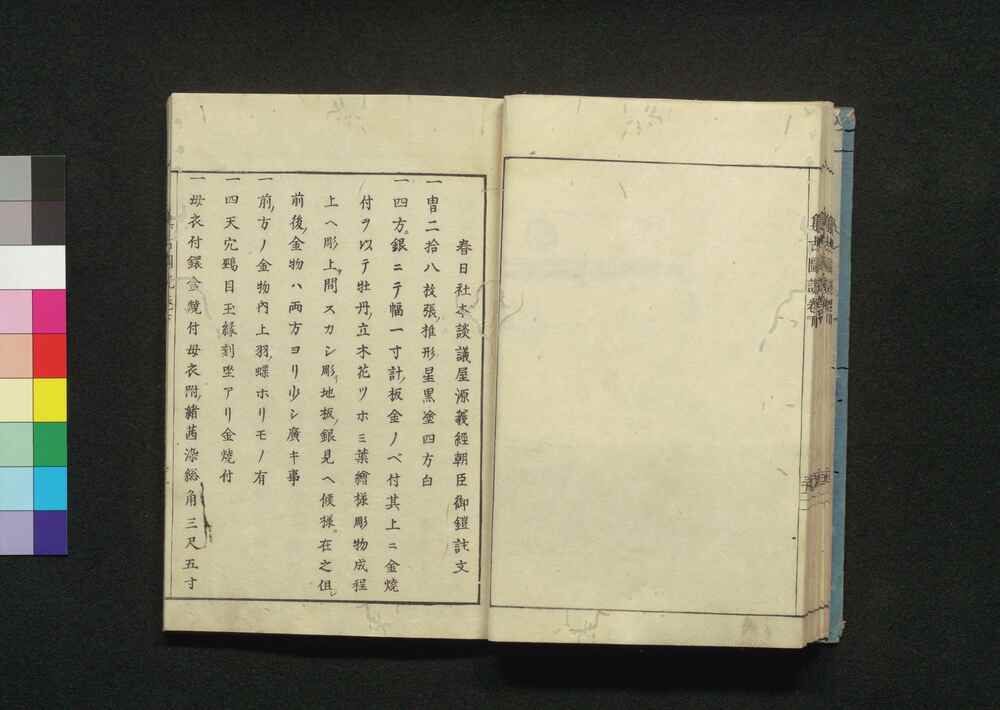 春日社本談議屋源義經朝臣御鎧註文
一冑二拾八枚張推形星黒塗四方白
一四方銀ニテ幅一寸計板金ノベ付其上ニ金燒
付ヲ以テ牡丹立木花ツホミ葉繪樣彫物成程
上ヘ彫上間スカシ彫地板銀見ヘ候樣在之但
前後金物ハ両方ヨリ少シ廣キ事
一前方ノ金物内上羽蝶ホリモノ有
一四天穴鵐目玉縁刻座アリ金燒付
一母衣付鐶金燒付母衣附緒茜染総角三尺五寸